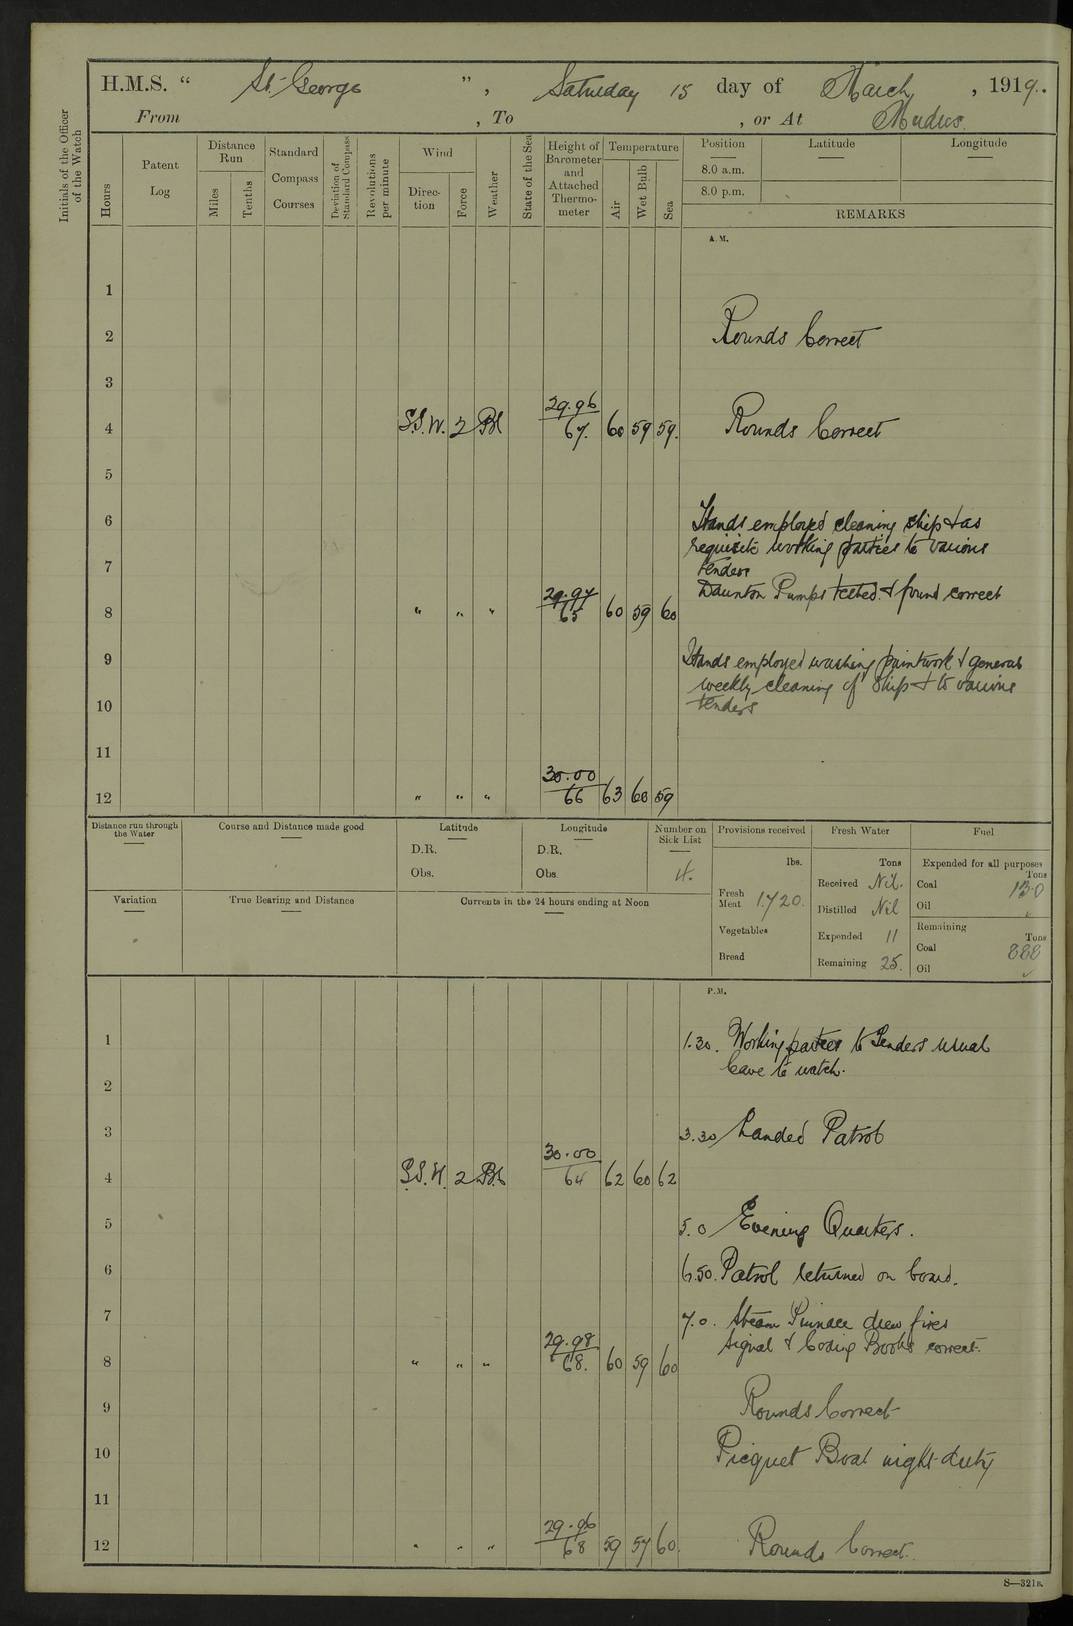 H.M.S. “ St. George ” , Saturday 15 day of March , 1919.
From , To , or At Mudros.
Initials of the Officer of the Watch
Hours
Patent Log
Distance Run
Miles
Tenths
Standard Compass Courses
Deviation of Standard Compass
Revolutions per minute
Wind
Direction
Force
Weather
State of the Sea
Height of Barometer and Attached Thermometer
Temperature
Air
Wet Bulb
Sea
Position
Latitude
Longitude
8.0 a.m.
8.0 p.m.
REMARKS
A.M.
1
2 Rounds Correct
3
4 S.S.W. 2 29.96 67. 60 59 59. Rounds Correct
5
6 Hands employed cleaning ship & as
requisite working parties to various
7 tenders
Daunton Pumps tested & found correct
8 “ “ “ 29.97 65 60 59 60
9 Hands employed washing paintwork & general
weekly cleaning of Ship & to various
10 tenders
11
12 “ “ “ 30.00 66 63 60 59
Distance run through the Water
Course and Distance made good
Latitude
D.R.
Obs.
Longitude
D.R.
Obs.
Number on Sick List
4.
Provisions received
lbs.
Fresh Meat 1720.
Vegetables
Bread
Fresh Water
Tons
Received Nil.
Distilled Nil
Expended 11
Remaining 25.
Fuel
Expended for all purposes
Tons
Coal
Oil
Remaining
Tons
Coal 888
Oil
Variation
True Bearing and Distance
Currents in the 24 hours ending at Noon
P.M.
1 1.30. Working parties to Tenders usual
leave to watch.
2
3 3.30 Landed Patrol
4 S.S.W. 2 30.00 64 62 60 62
5 5.0 Evening Quarters.
6 6.50. Patrol returned on board.
7 7.0. Steam Pinnace drew fires
Signal & Coding Books correct.
8 “ “ “ 29.98 68. 60 59 60
9 Rounds Correct
10 Picquet Boat night duty
11
12 “ “ “ 29.96 68 59 57 60. Rounds Correct.
S—321B.